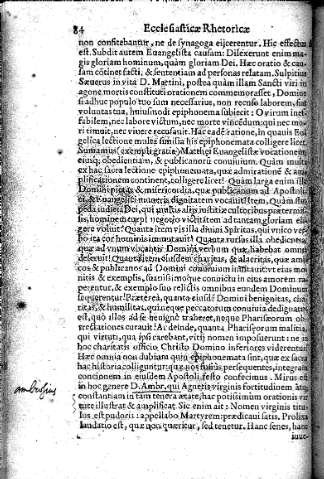 84 Ecclesiasticæ Rhetoricæ
non confitebantur, ne de synagoga eijcerentur. Hic effectus
est. Subdit autem Euangelista causam: Dilexerunt enim ma-
gis gloriam hominum, quàm gloriam Dei. Hæc oratio & cau-
sam cõtinet facti, & sententiam ad personas relatam. Sulpitius
Seuerus in vita D. Martini, postea quàm illam Sancti viri in
agone mortis constituti orationem commemorasset, Domine
si adhuc populo tuo sum necessarius, non recuso laborem, fiat
voluntas tua, huiusmodi epiphonema subiecit: O virum inef-
fabilem, nec labore victum, nec morte vincẽdum, qui nec mo-
ri timuit, nec viuere recusauit. Hac eadẽ ratione, in quauis Euã-
gelica lectione multa similia his epiphonemata colligere licet.
Sumamus (exempli gratia) Matthæi Euangelistæ vocationem
eiusq; obedientiam, & publicanorũ conuiuium. Quàm multa
ex hac sacra lectione epiphonemata, quæ admirationẽ & am-
plificationem continent, colligere licet! Quàm larga enim illa
Domini pietas & misericordia, quæ publicanum ad Apostoli-
ci, & Euangelici muneris dignitatem vocauit! Item, Quàm stu-
penda iudicia Dei, qui multis alijs iustitiæ cultoribus prætermis-
sis, hominem turpi negotio deditum ad tantam gloriam eli-
gere voluit! Quanta item vis illa diuini Spiritus, qui vnico ver-
bo ita cor hominis immutauit! Quanta rursus illa obedientia,
quæ ad vnam vocantis Domini verbum quæ habebat omnia
deseruit! Quanta item eiusdem charitas, & alacritas, quæ ami-
cos & publicanos ad Domini conuiuium inuitauit, vt eius mo-
nitis & exemplis, suauissimoque conuictu in eius amorem ra-
perentur, & exemplo suo relictis omnibus eundem Dominum
sequerentur! Præterea, quanto eiusd? Domini benignitas, cha-
ritas, & humilitas, qui neque peccatorum conuiuia dedignatus
est, quo illos ad se benignè traheret, neque Pharisæorum ob-
trectationes curauit! Ac deinde, quanta Pharisæorum malitia,
qui virtuti, qua ipsi carebant, vitij nomen imposuerunt: ne in
hoc charitatis officio Christo Domino inferiores viderentur!
Hæc omnia non dubium quin epiphonemata sint, quæ ex sacra
hac historia colligunt: quæ nos fusius persequentes, integram
concionem in eiusdem Apostoli festo confecimus. Mirus est
in hoc genere D. Ambr. qui Agnetis virginis fortitudinem &
constantiam in tam tenera ætate, hac potissimum orationis vir-
tute illustrat & amplificat. Sic enim ait: Nomen virginis titu-
lus est pudoris: appellabo Martyrem: prædicaui satis. Prolixa
laudatio est, quæ non quæritur, sed tenetur. Hanc senes, hanc
iuue-
ambrosius